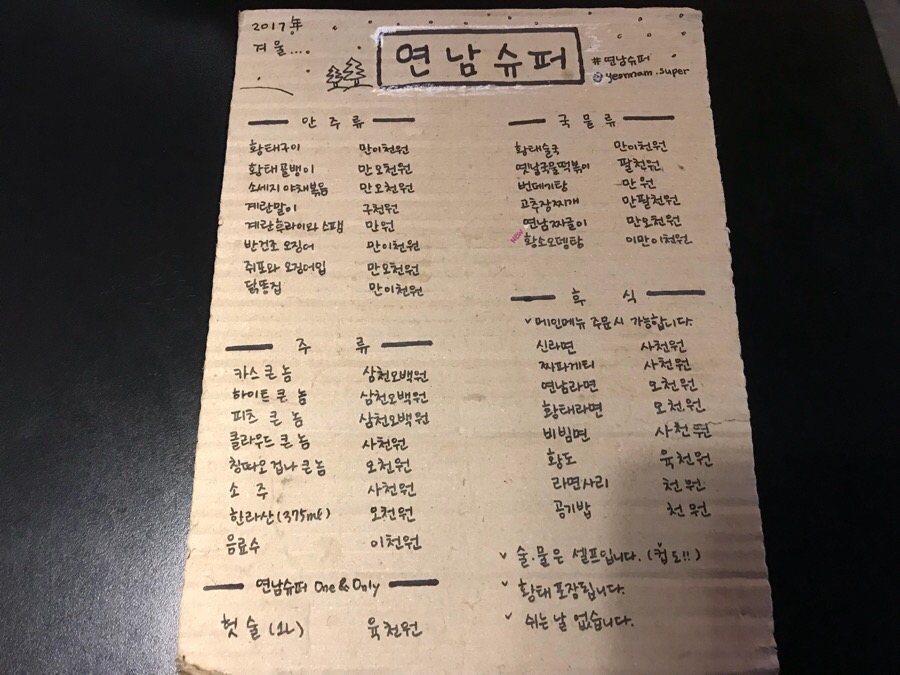 2017年
겨울...
연남슈퍼
#연남슈퍼
@yeonnam.super
안주류
황태구이 만이천원
황태골뱅이 만오천원
소세지 야채볶음 만오천원
계란말이 구천원
계란후라이와 스팸 만원
반건조 오징어 만이천원
쥐포와 오징어입 만오천원
닭똥집 만이천원
주류
카스 큰 놈 삼천오백원
하이트 큰 놈 삼천오백원
피츠 큰 놈 삼천오백원
클라우드 큰 놈 사천원
칭따오 겁나 큰 놈 오천원
소주 사천원
한라산(375ml) 오천원
음료수 이천원
연남슈퍼 One & Only
헛술(1L) 육천원
국물류
황태술국 만이천원
옛날국물떡볶이 팔천원
번데기탕 만원
고추장찌개 만팔천원
연남짜글이 만오천원
NEW 황소오뎅탕 이만이천원
후식
✓메인메뉴 주문시 가능합니다.
신라면 사천원
짜파게티 사천원
연남라면 오천원
황태라면 오천원
비빔면 사천원
황도 육천원
라면사리 천원
공기밥 천원
✓ 술.물은 셀프입니다. (컵도!!)
✓ 황태 포장됩니다.
✓ 쉬는 날 없습니다.